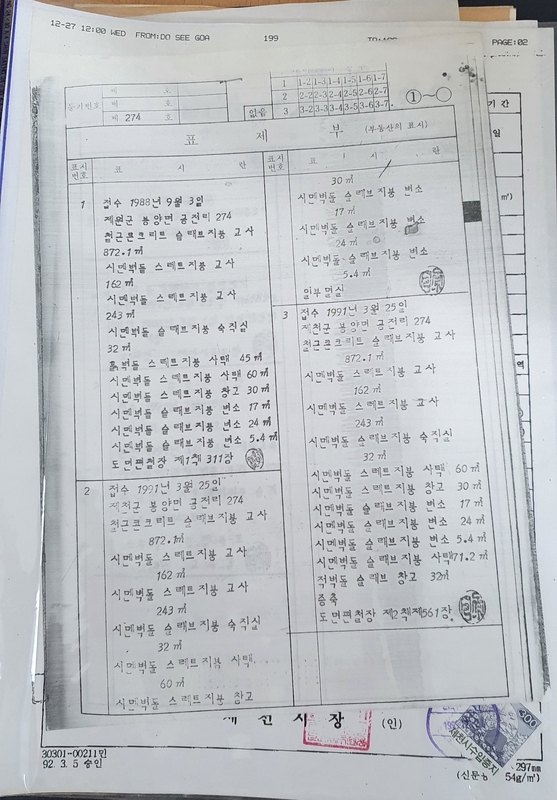 12-27 12:00 WED FROM:DO SEE GOA 199 PAGE:02
등기번호
제 호
제 호
제 274 호
1 1-2 1-3 1-4 1-5 1-6 1-7
2 2-2 2-3 2-4 2-5 2-6 2-7
없음 3 3-2 3-3 3-4 3-5 3-6 3-7
①~○
표 제 부 (부동산의 표시)
표시번호 표 시 란
1 접수 1988년 9월 3일
제원군 봉양면 공전리 274
철근콘크리트 슬래브지붕 교사
872.1㎡
시멘벽돌 스레트지붕 교사
162㎡
시멘벽돌 스레트지붕 교사
243㎡
시멘벽돌 슬래브지붕 숙직실
32㎡
흙벽돌 스레트지붕 사택 45㎡
시멘벽돌 스레트지붕 사택 60㎡
시멘벽돌 스레트지붕 창고 30㎡
시멘벽돌 슬래브지붕 변소 17㎡
시멘벽돌 슬래브지붕 변소 24㎡
시멘벽돌 슬래브지붕 변소 5.4㎡
도면편철장 제1책 311장
2 접수 1991년 3월 25일
제천군 봉양면 공전리 274
철근콘크리트 슬래브지붕 교사
872.1㎡
시멘벽돌 스레트지붕 교사
162㎡
시멘벽돌 스레트지붕 교사
243㎡
시멘벽돌 슬래브지붕 숙직실
32㎡
시멘벽돌 스레트지붕 사택
60㎡
시멘벽돌 스레트지붕 창고
표시번호 표 시 란
30㎡
시멘벽돌 슬래브지붕 변소
17㎡
시멘벽돌 슬래브지붕 변소
24㎡
시멘벽돌 슬래브지붕 변소
5.4㎡
일부멸실
3 접수 1991년 3월 25일
제천군 봉양면 공전리 274
철근콘크리트 슬래브지붕 교사
872.1㎡
시멘벽돌 스레트지붕 교사
162㎡
시멘벽돌 스레트지붕 교사
243㎡
시멘벽돌 슬래브지붕 숙직실
32㎡
시멘벽돌 스레트지붕 사택 60㎡
시멘벽돌 스레트지붕 창고 30㎡
시멘벽돌 슬래브지붕 변소 17㎡
시멘벽돌 슬래브지붕 변소 24㎡
시멘벽돌 슬래브지붕 변소 5.4㎡
시멘벽돌 슬래브지붕 사택 71.2㎡
적벽돌 슬래브 창고 32㎡
증축
도면편철장 제2책 제561장
기 간
일
㎡)
역
제 천 시 장 (인)
제천시수입증지
300
30301-00211민
92. 3. 5 승인
297mm
54g/㎡)